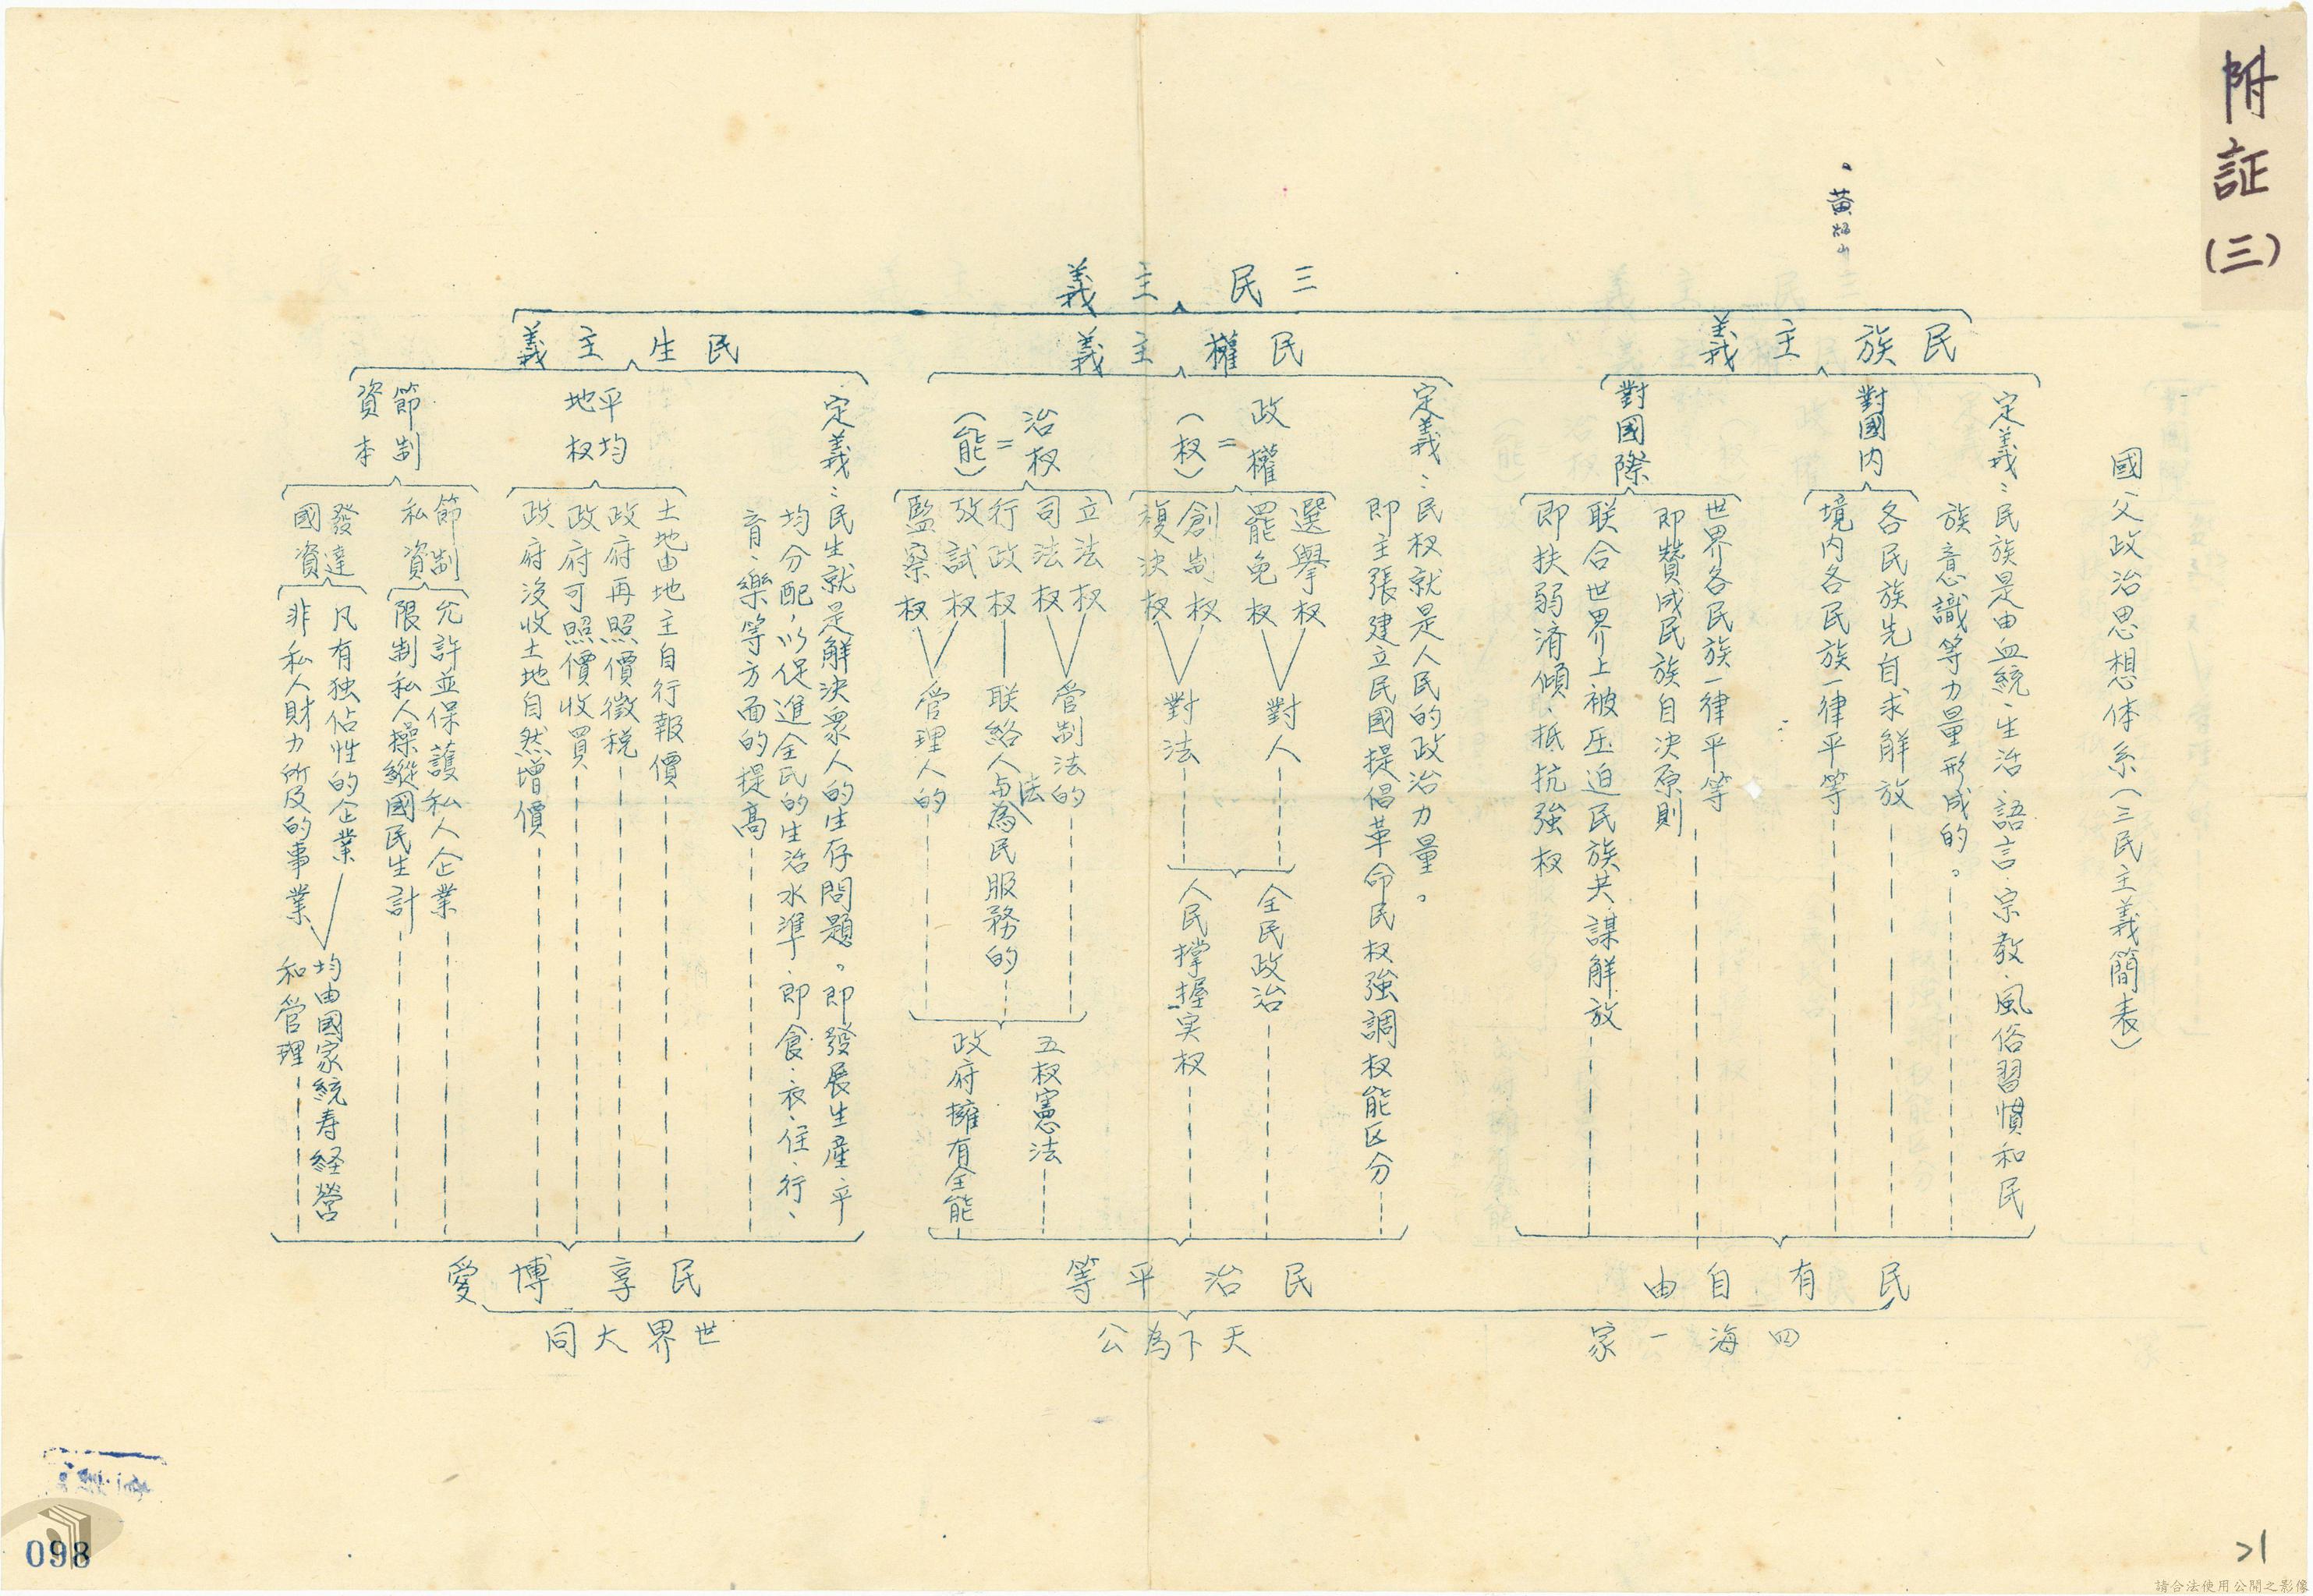 附証
(三)
黃
國父政治思想体系(三民主義簡表)
三民主義
民族主義
定義:民族是由血統、生活、語言、宗教、風俗習慣和民
族意識等力量形成的。
對國內
各民族先自求解放
境內各民族一律平等
對國際
世界各民族一律平等
即贊成民族自決原則
联合世界上被压迫民族共謀解放
即扶弱濟傾、抵抗強权
民有自由
民權主義
定義:民权就是人民的政治力量。
即主張建立民國提倡革命民权強調权能区分
政權
=
(权)
選舉权
罷免权
對人
創制权
複決权
對法
全民政治
人民撑握实权
治权
=
(能)
立法权
司法权
管制法的
行政权
联絡人与法為民服務的
攷試权
監察权
管理人的
五权憲法
政府擁有全能
民治平等
民生主義
定義:民生就是解決衆人的生存問題。即發展生產、平
均分配,以促進全民的生活水準、即食、衣、住、行、
育、樂等方面的提高
平均
地权
土地由地主自行報價
政府再照價徵稅
政府可照價收買
政府沒收土地自然增價
節制
資本
節制
私資
允許並保護私人企業
限制私人操縱國民生計
發達
國資
凡有独佔性的企業
非私人財力所及的事業
均由國家統寿経營
和管理
民享博愛
四海一家
天下為公
世界大同
098
21
請合法使用公開之影像